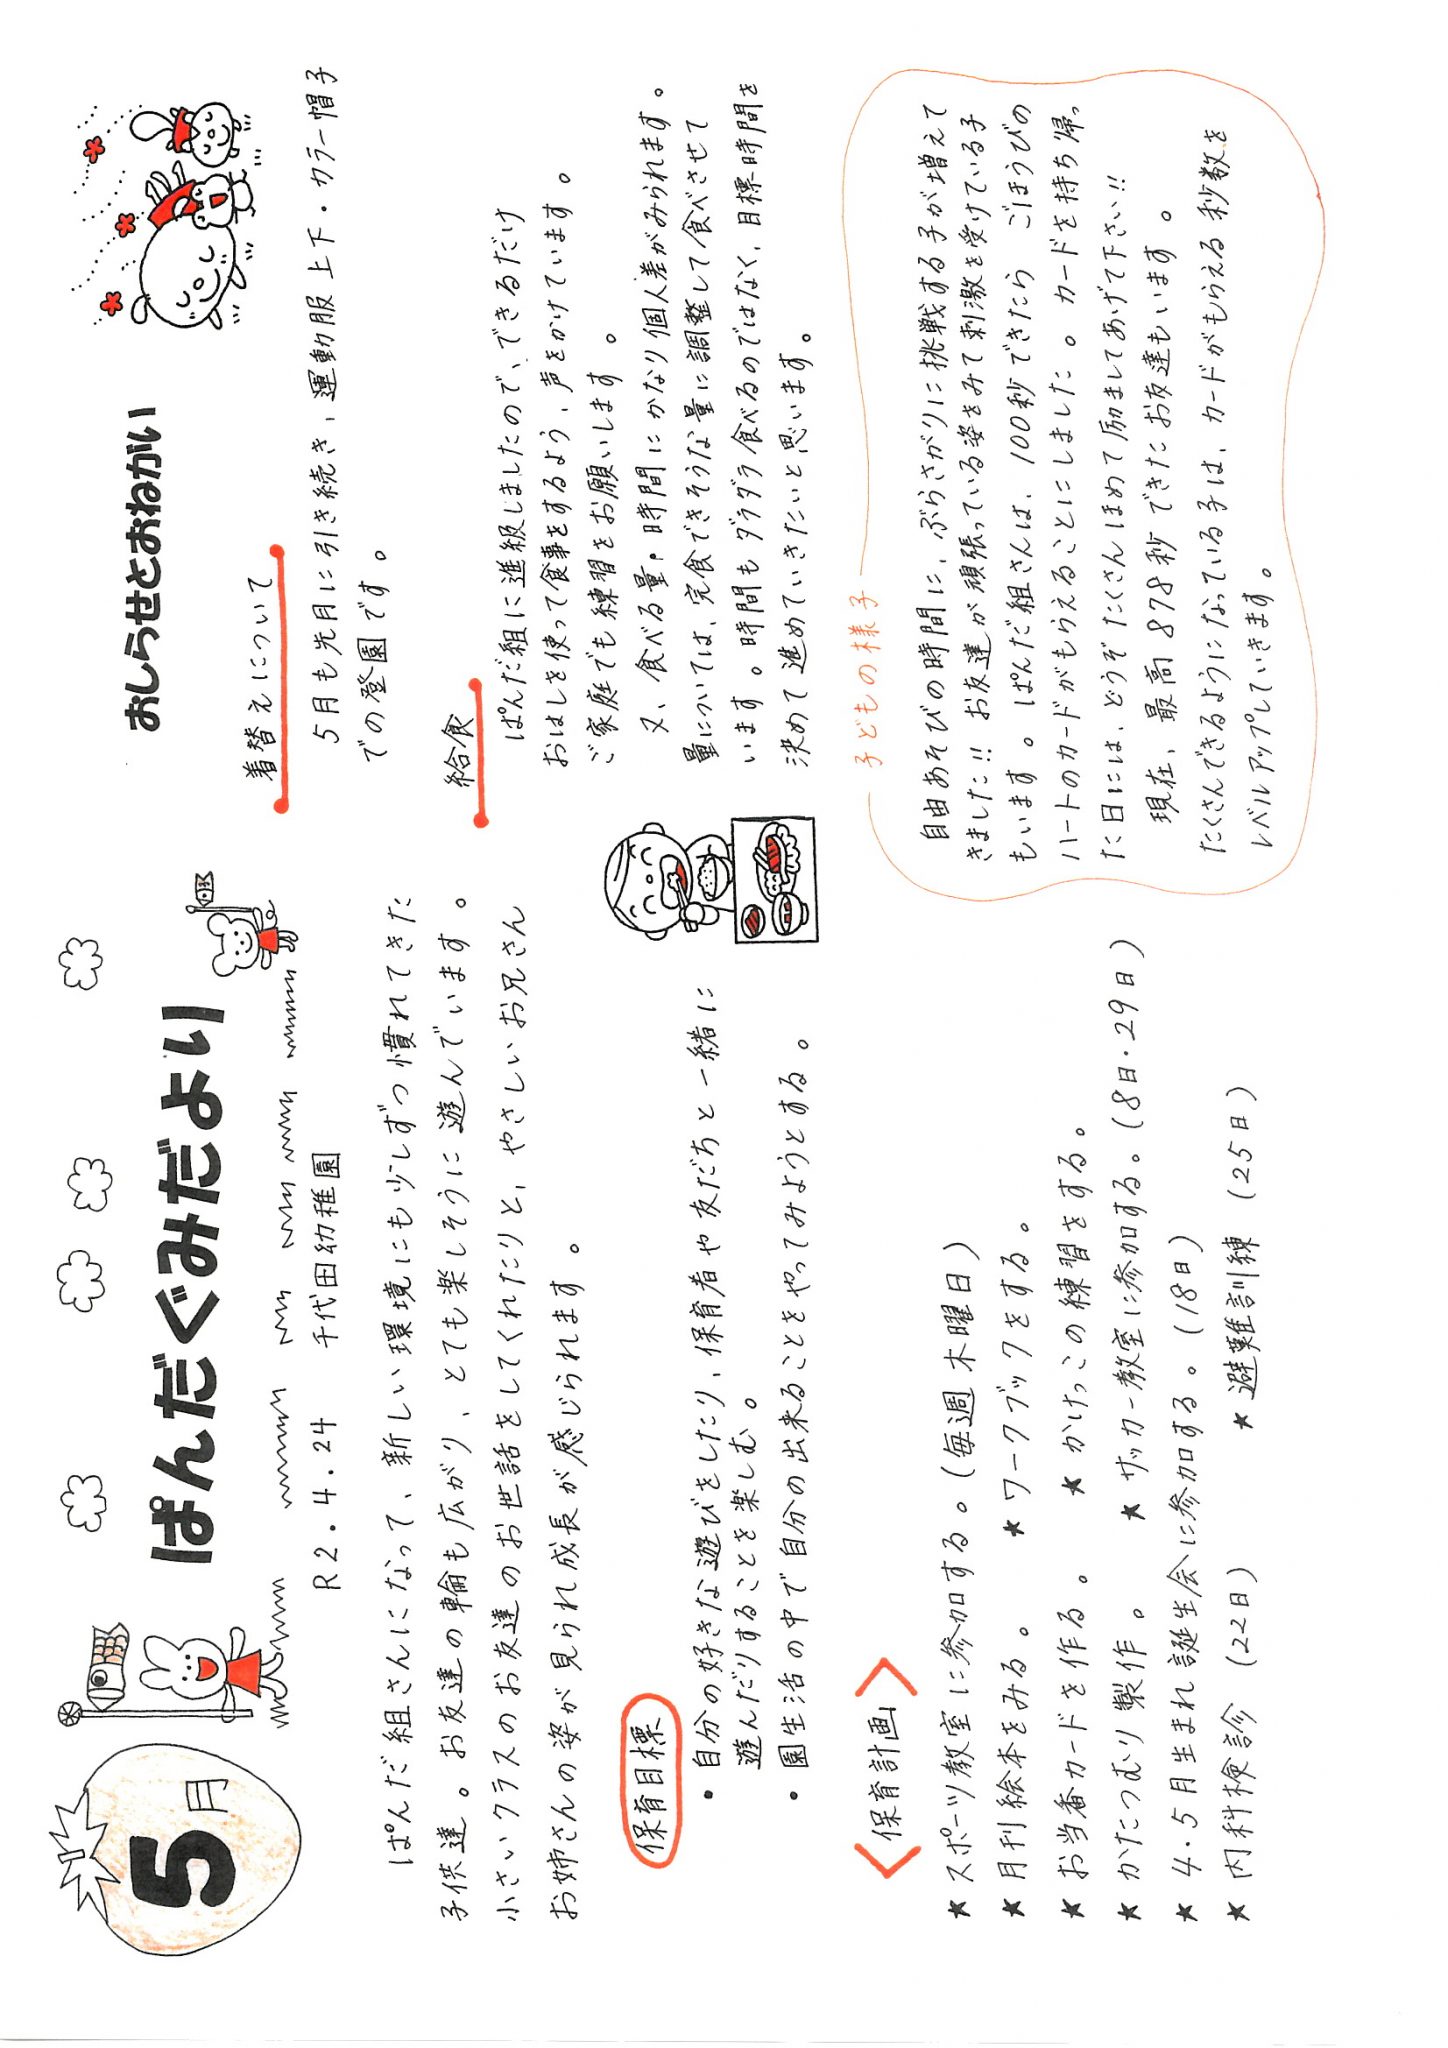 5月
ぱんだぐみだより
R2.4.24 千代田幼稚園
ぱんだ組さんになって、新しい環境にも少しずつ慣れてきた
子供達。お友達の輪も広がり、とても楽しそうに遊んでいます。
小さいクラスのお友達のお世話をしてくれたりと、やさしいお兄さん
お姉さんの姿が見られ成長が感じられます。
保育目標
・自分の好きな遊びをしたり、保育者や友だちと一緒に
遊んだりすることを楽しむ。
・園生活の中で自分の出来ることをやってみようとする。
〈保育計画〉
★スポーツ教室に参加する。(毎週木曜日)
★月刊絵本をみる。 ★ワークブックをする。
★お当番カードを作る。 ★かけっこの練習をする。
★かたつむり製作。 ★サッカー教室に参加する。(8日・29日)
★4・5月生まれ誕生会に参加する。(18日)
★内科検診 (22日) ★避難訓練 (25日)
おしらせとおねがい
着替えについて
5月も先月に引き続き、運動服上下・カラー帽子
での登園です。
給食
ぱんだ組に進級しましたので、できるだけ
おはしを使って食事をするよう、声をかけています。
ご家庭でも練習をお願いします。
又、食べる量・時間にかなり個人差がみられます。
量については、完食できそうな量に調整して食べさせて
います。時間もダラダラ食べるのではなく、目標時間を
決めて進めていきたいと思います。
子どもの様子
自由あそびの時間に、ぶらさがりに挑戦する子が増えて
きました!! お友達が頑張っている姿をみて刺激を受けている子
もいます。ぱんだ組さんは、100秒できたら ごほうびの
ハートのカードがもらえることにしました。カードを持ち帰っ
た日には、どうぞたくさんほめて励ましてあげて下さい!!
現在、最高878秒できたお友達もいます。
たくさんできるようになっている子は、カードがもらえる秒数を
レベルアップしていきます。